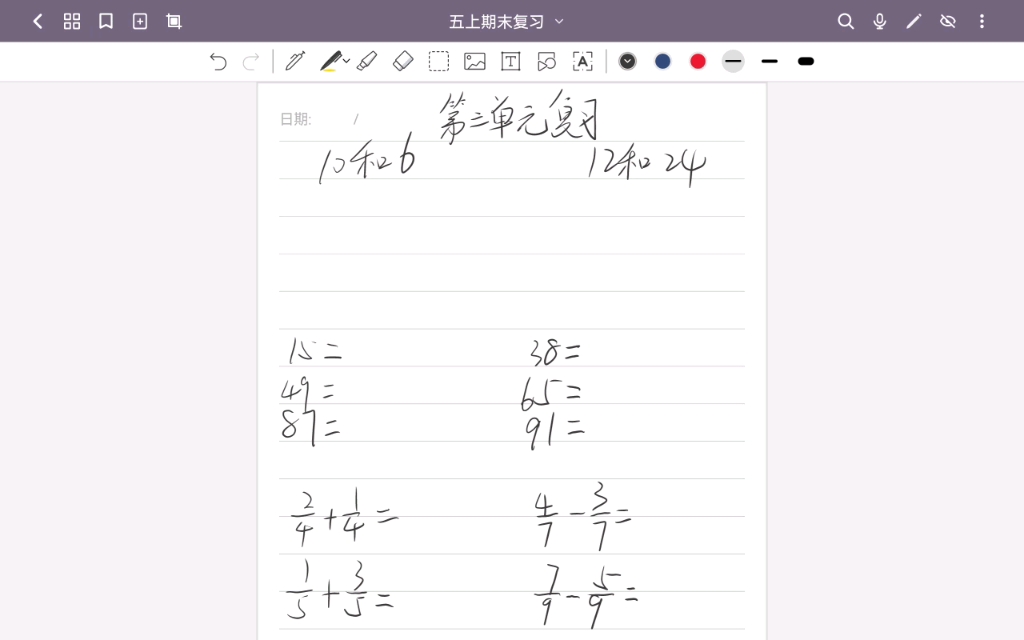 五上期末复习
日期: /
第三单元复习
10和6 12和24
15= 38=
49= 65=
87= 91=
2/4+1/4= 4/7-3/7=
1/5+3/5= 7/9-5/9=